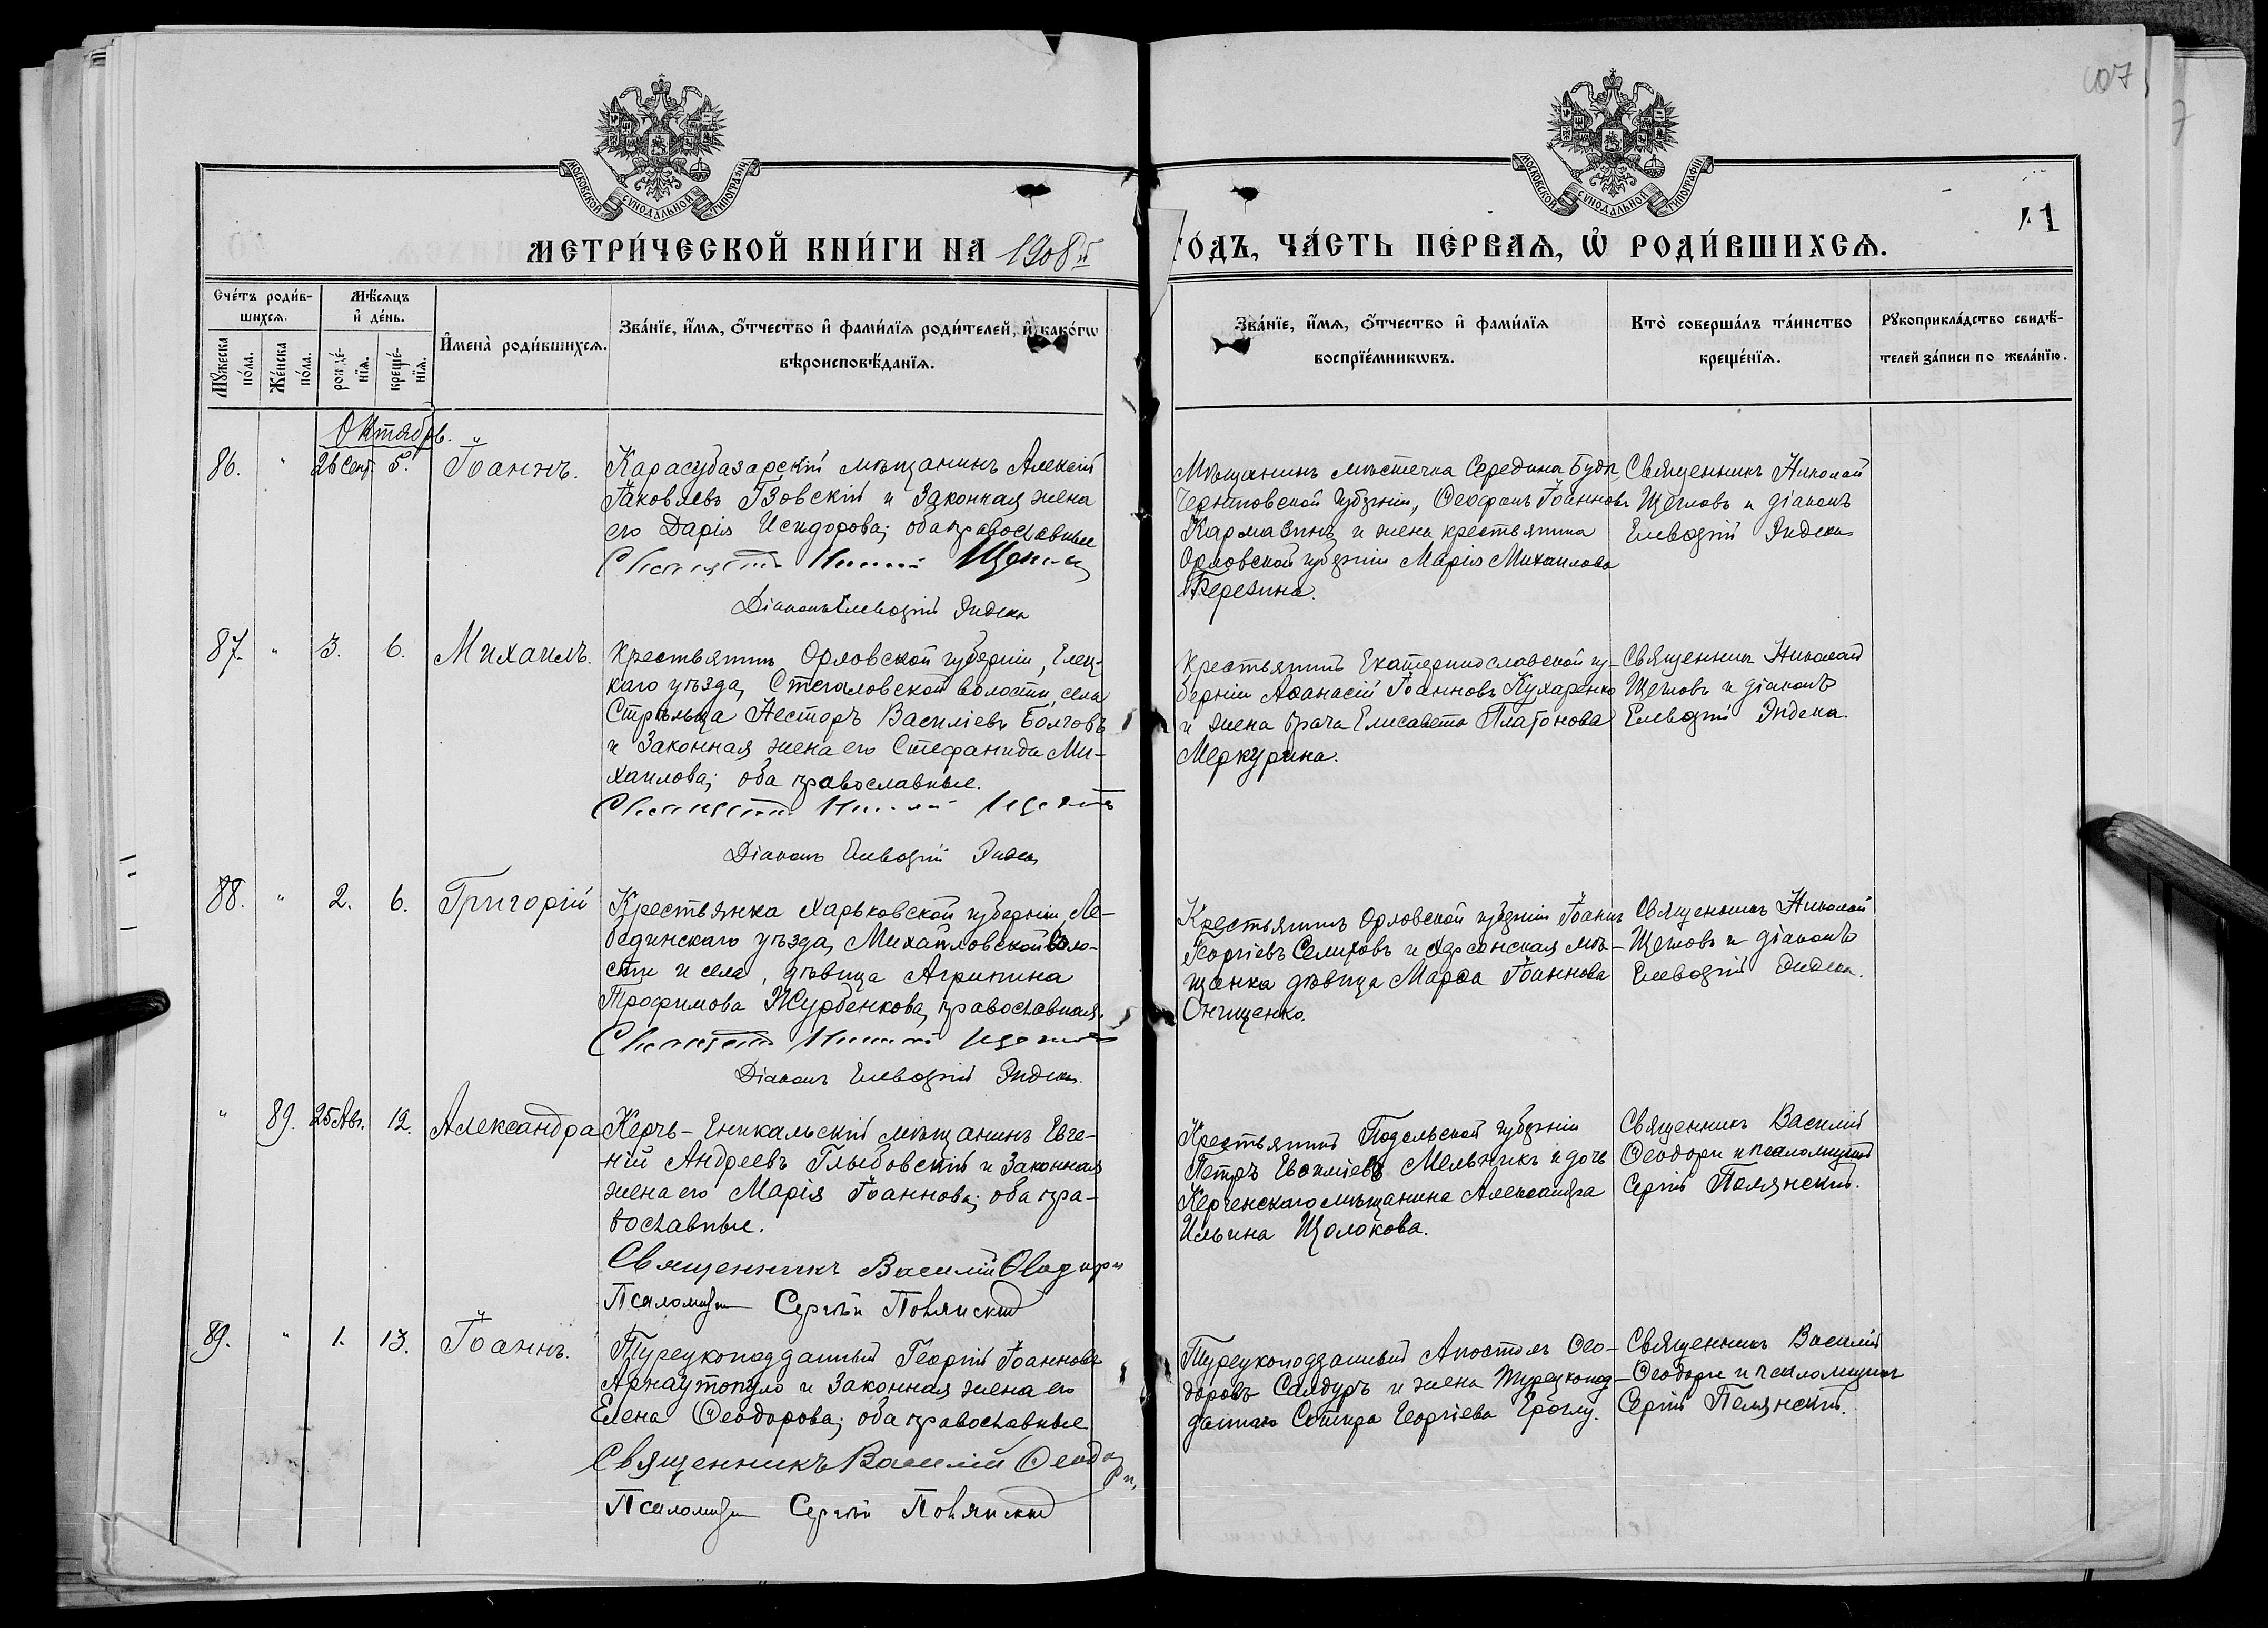 107
МОСКОВСКОЙ СУНОДАЛЬНОЙ ТИПОГРАФІИ
МОСКОВСКОЙ СУНОДАЛЬНОЙ ТИПОГРАФІИ
МЕТРИ́ЧЕСКОЙ КНИ́ГИ НА 1908й
ГО́ДЪ, ЧА́СТЬ ПЕ́РВАѦ, Ѡ҆ РОДИ́ВШИХСѦ.
Сче́тъ роди́в-
шихсѧ.
Мѣ́сѧцъ
и҆ де́нь.
Мꙋ́жеска
по́ла.
Же́нска
по́ла.
рожде́-
нїѧ.
креще́-
нїѧ.
И҆мена̀ роди́вшихсѧ.
Зва́нїе, и҆́мѧ, ѻ҆́тчество и҆ фами́лїѧ роди́телей, и҆ како́гѡ
вѣроисповѣ́данїѧ.
Зва́нїе, и҆́мѧ, ѻ҆́тчество и҆ фами́лїѧ
воспрїе́мникѡвъ.
Кто̀ соверша́лъ та́инство
креще́нїѧ.
Рꙋкоприкла́дство свидѣ́-
телей за́писи по жела́нїю.
Октябрь.
86. " 26 Сент. 5. Іоаннъ.
Карасубазарскій мѣщанинъ Алексій
Іаковлевъ Гзовскій и законная жена
его Дарія Исидорова; оба православные
Діаконъ Елевѳерій Эндека
Мѣщанинъ мѣстечка Середина Буда
Черниговской губерніи, Ѳеофанъ Іоанновъ
Кармазинъ и жена крестьянина
Орловской губерніи Марія Михаилова
Березина.
Священникъ Николай
Щегловъ и діаконъ
Елевѳерій Эндека
87. " 3. 6. Михаилъ.
Крестьянинъ Орловской губерніи, Елец-
каго уѣзда, Стегаловской волости, села
Стрѣльца Несторъ Василіевъ Болговъ
и законная жена его Стефанида Ми-
хаилова; оба православные.
Діаконъ Елевѳерій Эндека
Крестьянинъ Екатеринославской гу-
берніи Аѳанасій Іоанновъ Кухаренко
и жена врача Елисавета Платонова
Меркурина.
Священникъ Николай
Щегловъ и діаконъ
Елевѳерій Эндека.
88. " 2. 6. Григорій
Крестьянка Харьковской губерніи Ле-
бединскаго уѣзда, Михайловской воло-
сти и села, дѣвица Агрипина
Трофимова Журбенкова, православная.
Діаконъ Елевѳерій Эндека
Крестьянинъ Орловской губерніи Іоаннъ
Георгіевъ Селиховъ и Херсонская мѣ-
щанка дѣвица Марѳа Іоаннова
Онищенко.
Священникъ Николай
Щегловъ и діаконъ
Елевѳерій Эндека.
" 89. 25 Авг. 12. Александра
Керчь-Еникальскій мѣщанинъ Евге-
ній Андреевъ Глыбовскій и законная
жена его Марія Іоаннова; оба пра-
вославные.
Священникъ Василій Ѳеодори
Псаломщикъ Сергѣй Полянскій
Крестьянинъ Подольской губерніи
Петръ Евѳиміевъ Мельникъ и дочь
Керченскаго мѣщанина Александра
Ильина Щолокова.
Священникъ Василій
Ѳеодори и псаломщикъ
Сергій Полянскій.
89. " 1. 13. Іоаннъ.
Турецкоподданный Георгій Іоанновъ
Арнаутопуло и законная жена его
Елена Ѳеодорова; оба православные
Священникъ Василій Ѳеодори,
Псаломщикъ Сергѣй Полянскій
Турецкоподданный Апостолъ Ѳео-
доровъ Салдуръ и жена турецкопод-
даннаго Сотира Георгіева Ероглу.
Священникъ Василій
Ѳеодори и псаломщикъ
Сергій Полянскій.